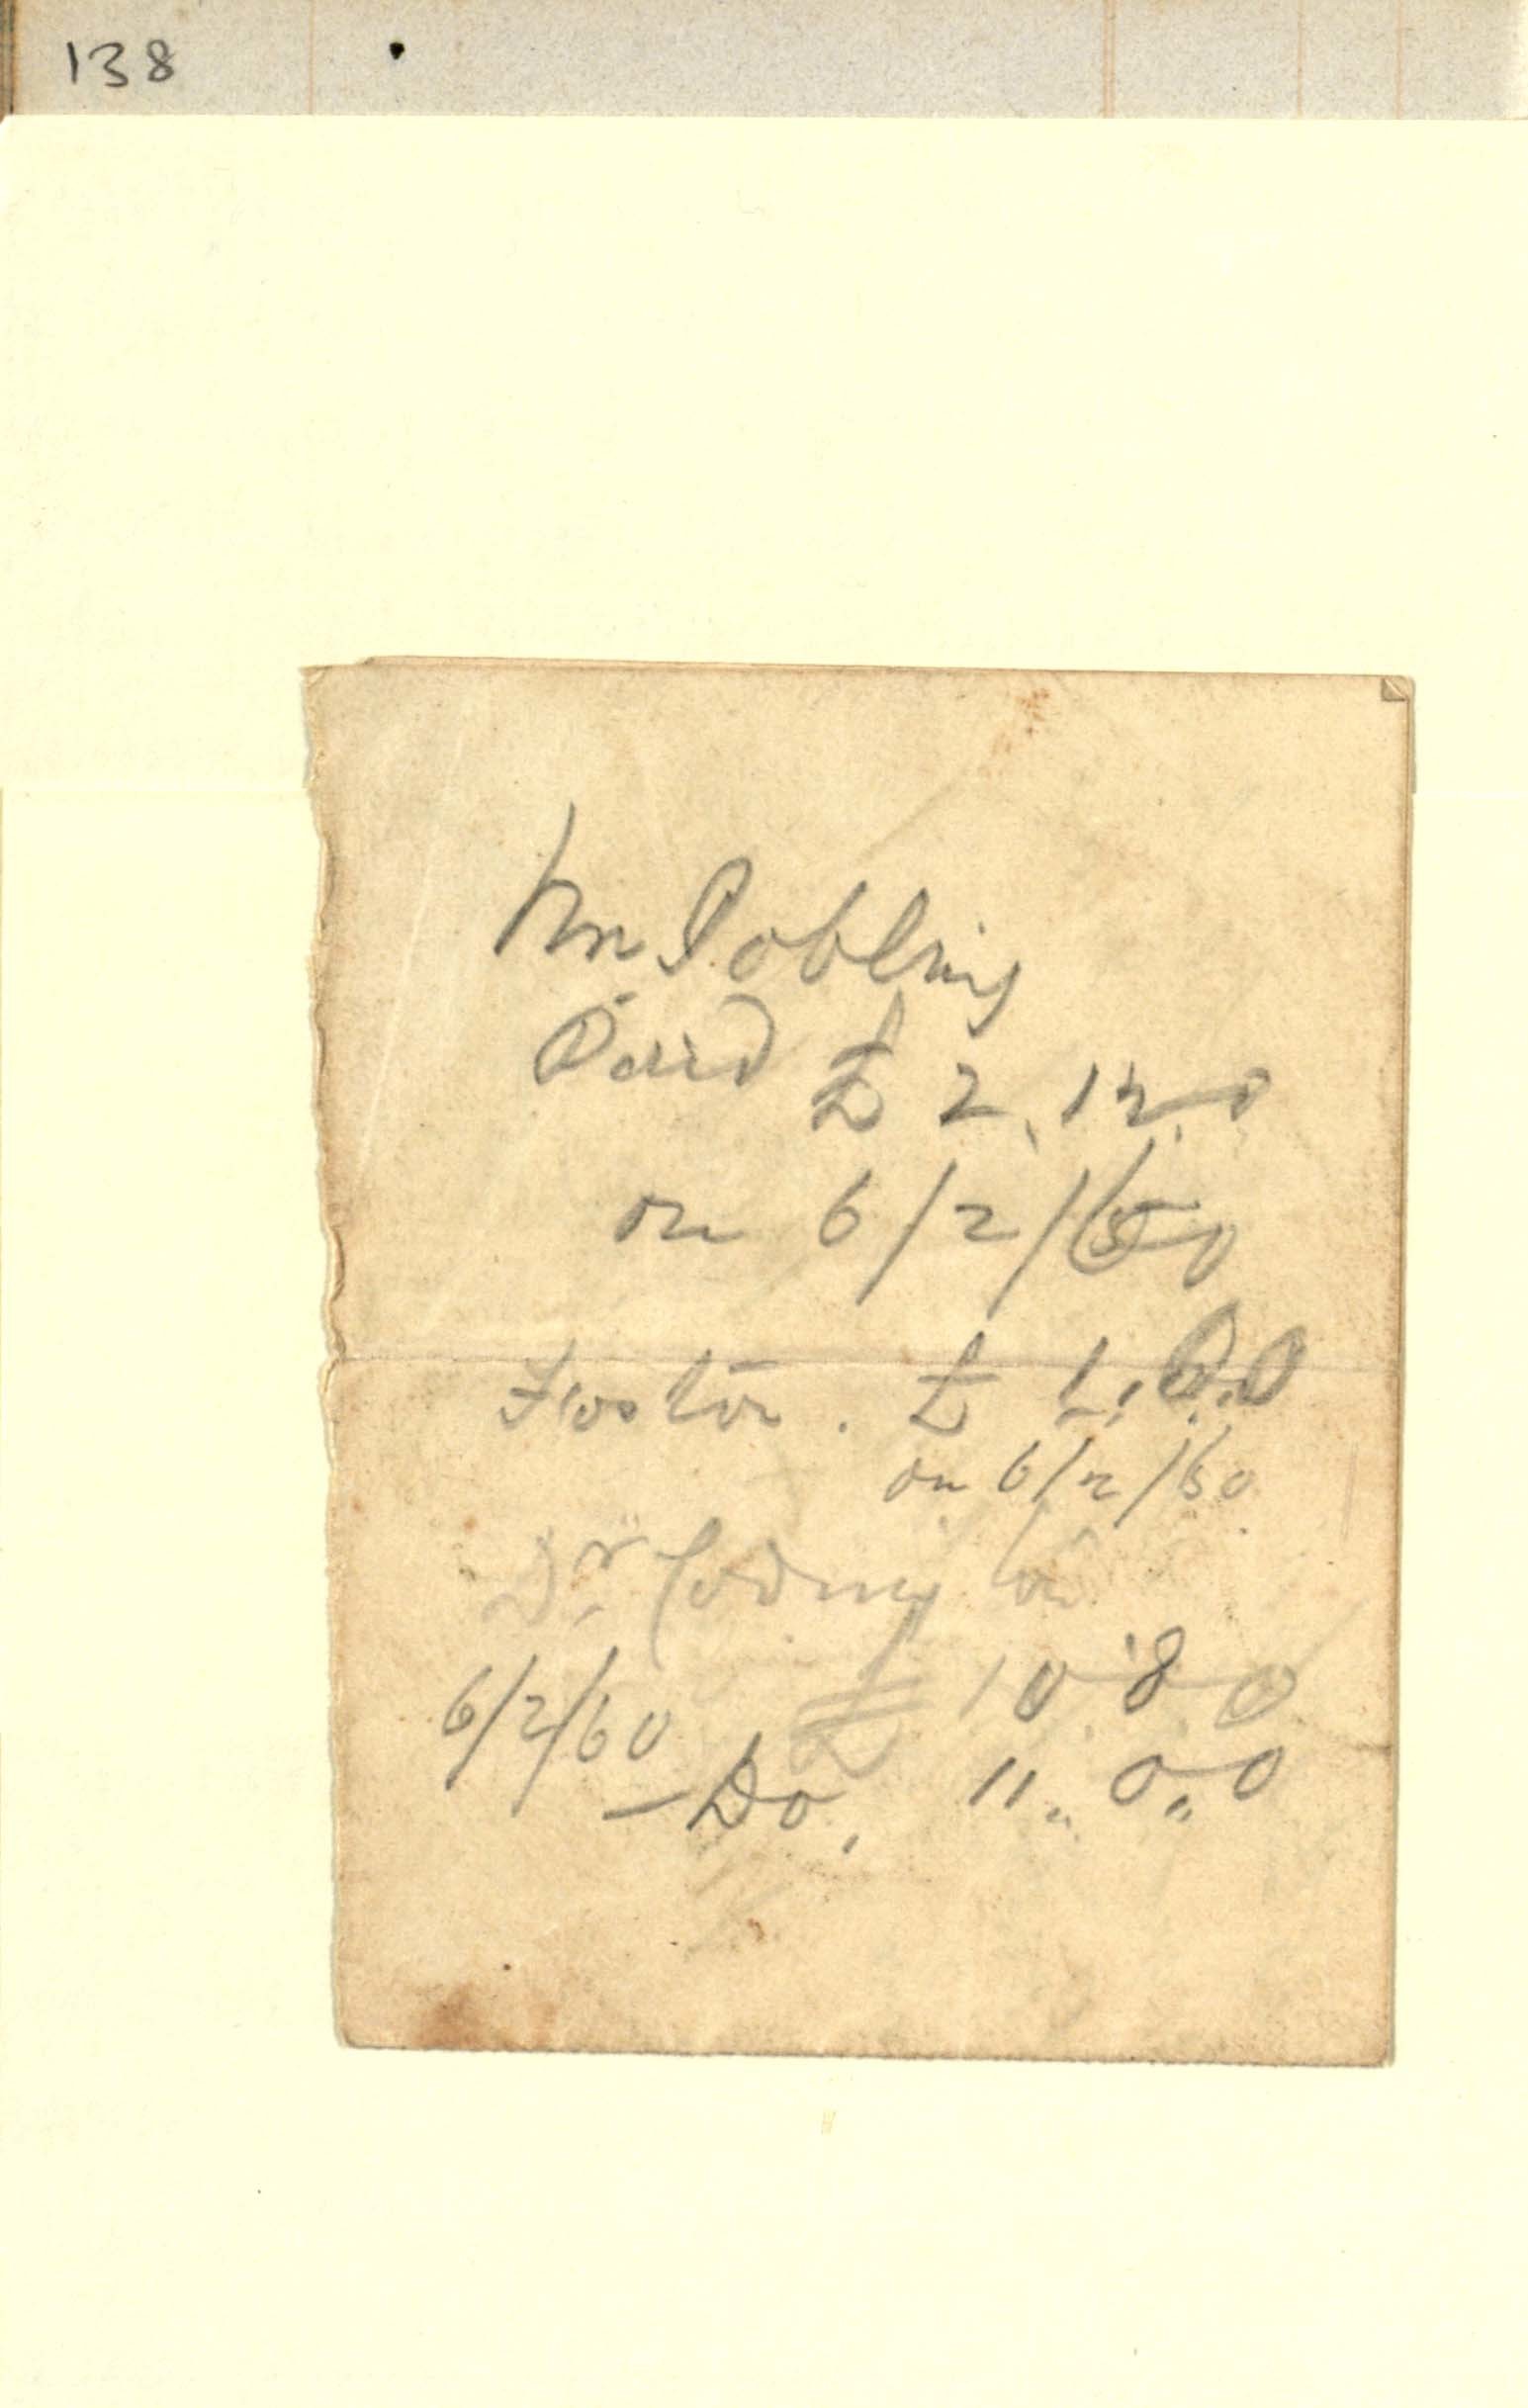 138
Wm Jobling
Paid £ 2. 12. 0
on 6/2/60
Foster. £ 1. 0. 0
on 6/2/60
Dr on
6/2/60 £ 10 8 0
— Do. 11.. 0.. 0